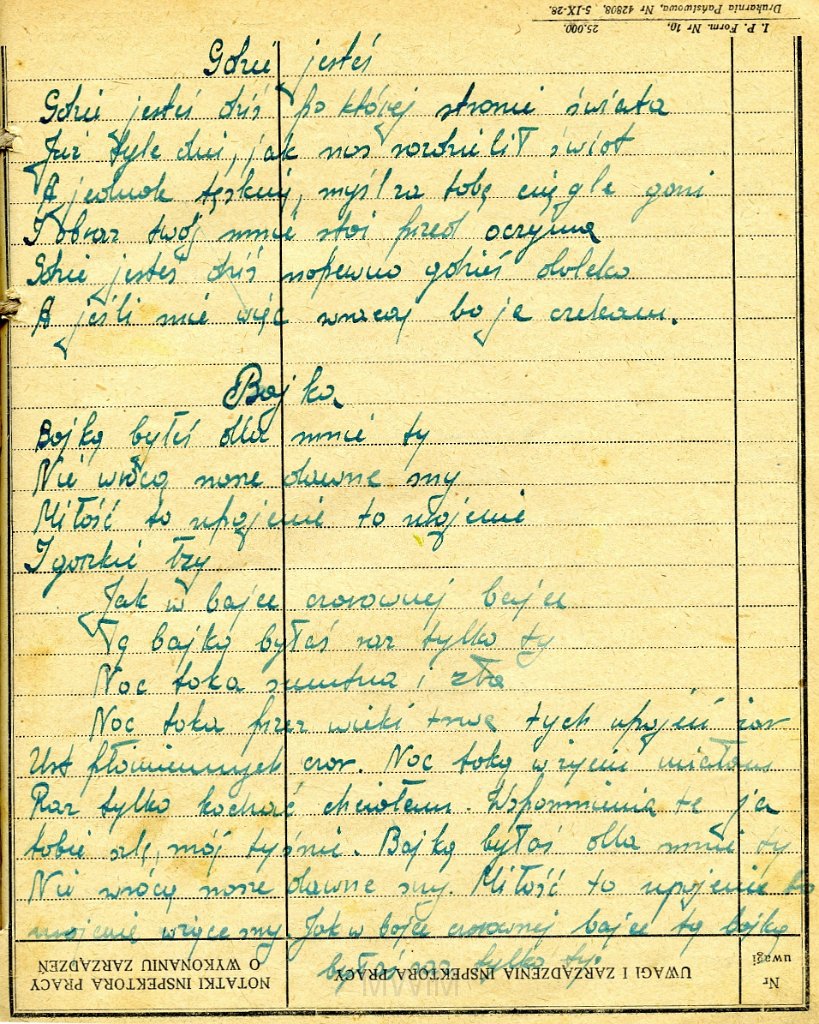 I. P. Form. Nr 10. 25.000.
Drukarnia Państwowa, Nr 42808. 5-IX-28.
Gdzie jesteś
Gdzie jesteś dziś po której stronie świata
Już tyle dni, jak nas rozdzielił świat
A jednak tęsknię, myśl za tobą ciągle goni
I obraz twój mnie stoi przed oczyma
Gdzie jesteś dziś napewno gdzieś daleko
A jeśli nie więc wracaj bo ja czekam.
Bajka
Bajką byłeś dla mnie ty
Nie wrócą nasze dawne sny
Miłość to upojenie to urojenie
I gorzkie łzy
Jak w bajce czarownej bajce
Tą bajką byłaś raz tylko ty
Noc taka smutna i zła
Noc taka przez wieki trwa tych upojeń czar
Ust płomiennych czar. Noc taką w życiu miałam
Raz tylko kochać chciałam. Wspomnienia te ja
tobie ślę, mój tyś nie. Bajką byłaś dla mnie ty
Nie wrócą nasze dawne sny. Miłość to upojenie to
urojenie sny. Jak w bajce czarownej bajce tą bajką
byłaś raz tylko ty.
Nr uwagi
UWAGI I ZARZĄDZENIA INSPEKTORA PRACY
NOTATKI INSPEKTORA PRACY O WYKONANIU ZARZĄDZEŃ